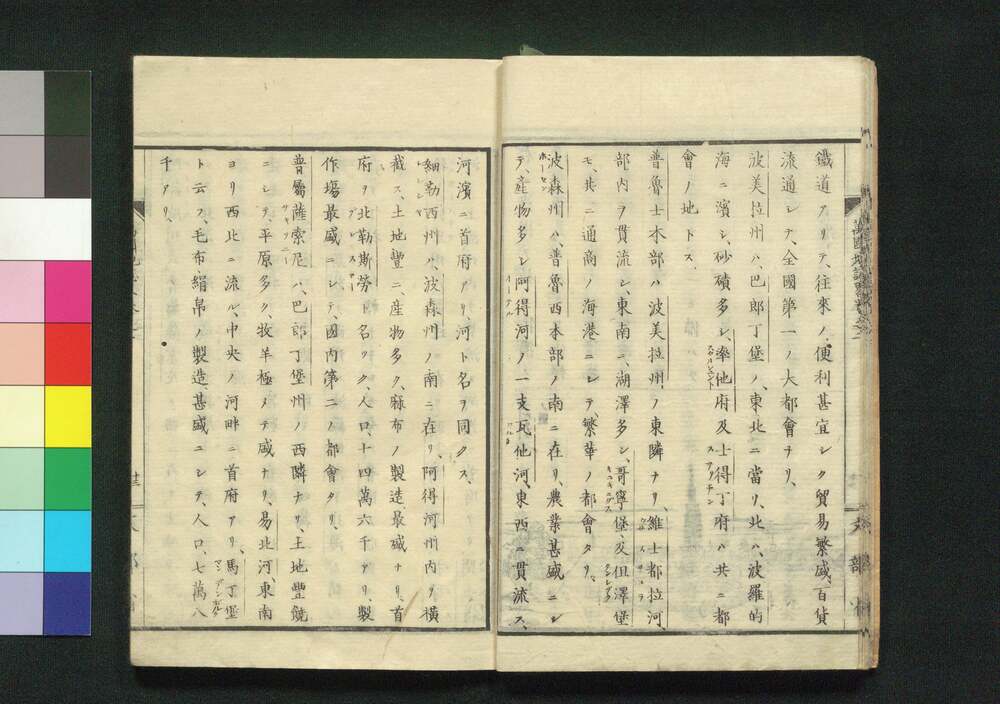 鐵道アリテ、往來ノ便利甚宜シク貿易繁盛、百貨
流通シテ、全國第一ノ大都會ナリ、
波美拉州ハ、巴郎丁堡ノ、東北ニ當リ、北ハ、波羅的
海ニ濱シ、砂磧多シ、率他府及士得丁府ハ共ニ都
會ノ地トス、
普魯士本部ハ波美拉州、ノ東隣ナリ、維士都拉河、
部内ヲ貫流シ、東南ニ、湖澤多シ、哥寧堡、及但澤堡
モ、共ニ通商ノ海港ニシテ、繁華ノ都會タリ、
波森州ハ、普魯西本部ノ南ニ在リ、農業甚盛ニシ
テ、産物多シ阿得河ノ一支瓦他河、東西ニ貫流ス、
河濱ニ首府アリ、河ト名ヲ同クス、
細勒西州ハ、波森州ノ南ニ在リ、阿得河州内ヲ横
截ス、土地豐ニ、産物多ク、麻布ノ製造最盛ナリ、首
府ヲ北勒斯勞ト名ツク、人口、十四萬六千アリ、製
作塲最盛ニシテ、國内第二ノ都會タリ、
普屬薩索尼ハ、巴郎丁堡州ノ西隣ナリ、土地豐饒
ニシテ、平原多ク、牧羊極メテ盛ナリ、易北河、東南
ヨリ西北ニ流ル、中央ノ河畔ニ首府アリ、馬丁堡
ト云フ、毛布、絹帛ノ製造、甚盛ニシテ、人口、七萬八
千アリ、